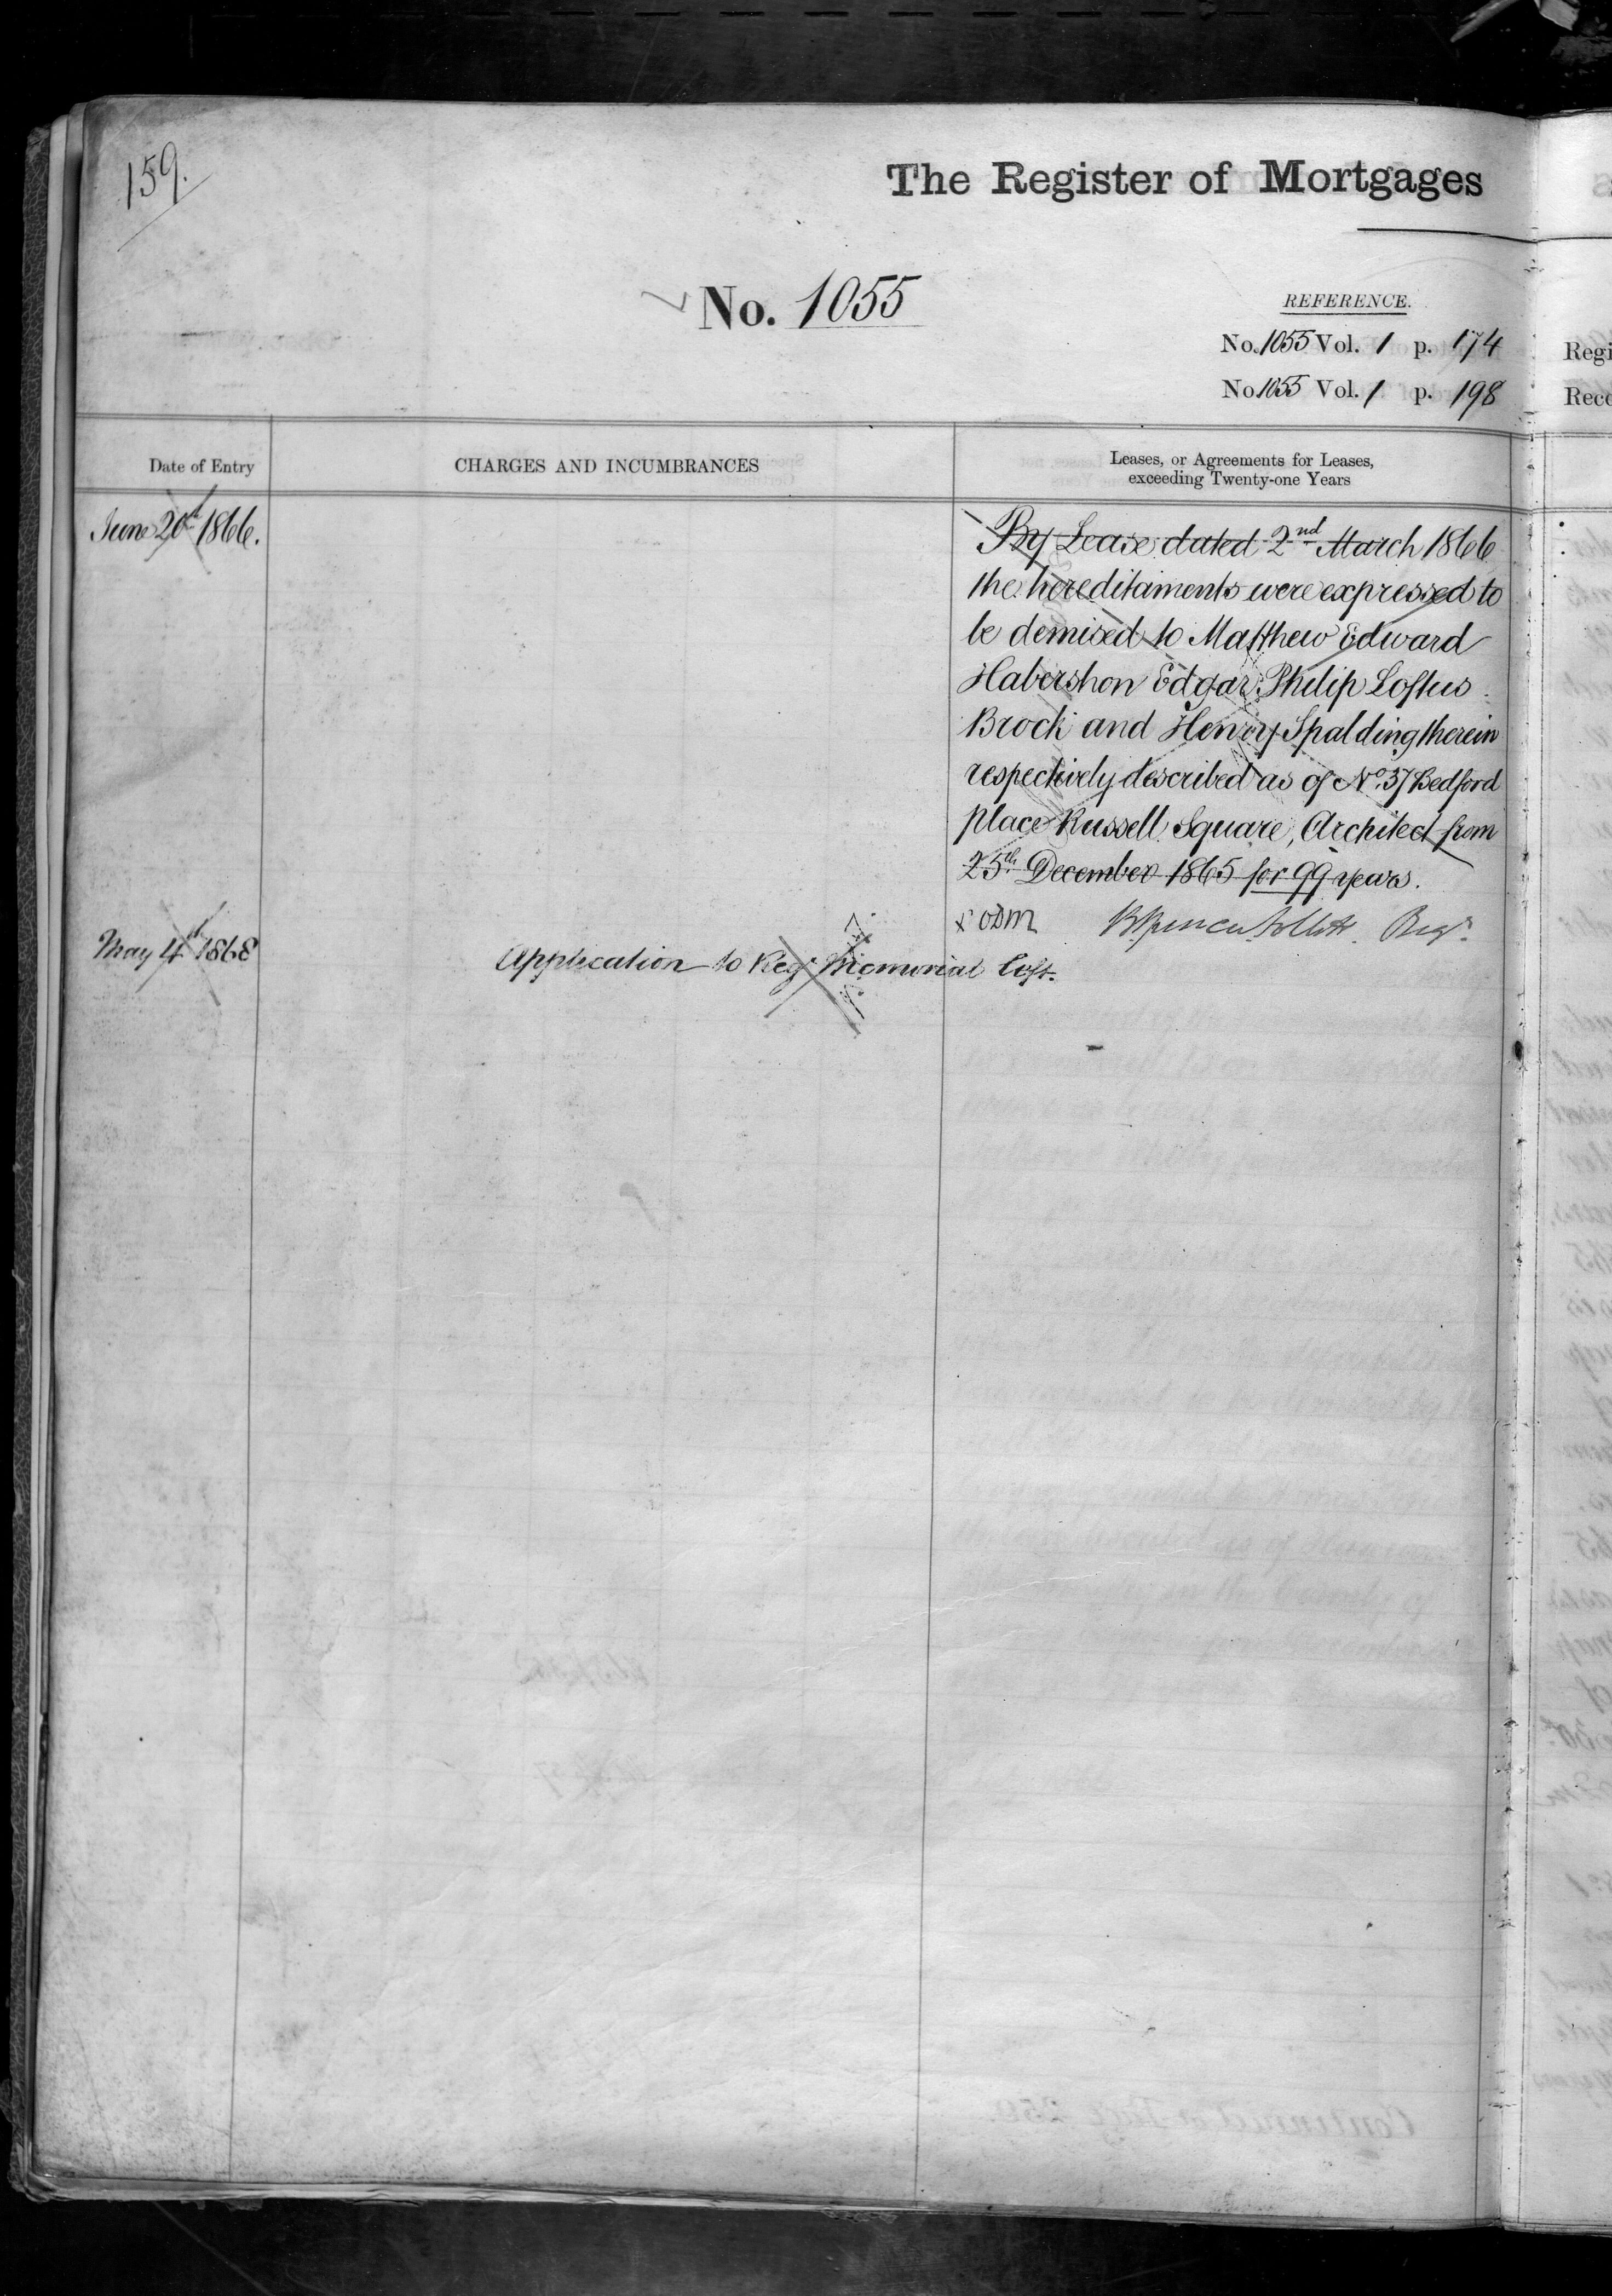 159.
The Register of Mortgages
No. 1055
REFERENCE.
No. 1055 Vol. 1 p. 174
No 1055 Vol. 1 p. 198
Regi
Reco
Date of Entry
CHARGES AND INCUMBRANCES
Leases, or Agreements for Leases,
exceeding Twenty-one Years
June 20th 1866.
By Lease dated 2nd March 1866
the hereditaments were expressed to
be demised to Matthew Edward
Habershon Edgar Philip Loftus
Brock and Henry Spalding therein
respectively described as of No. 37 Bedford
place Russell Square, Architect from
25th December 1865 for 99 years.
x ODM
Regr.
May 4th 1868
Application to Regr Memorial